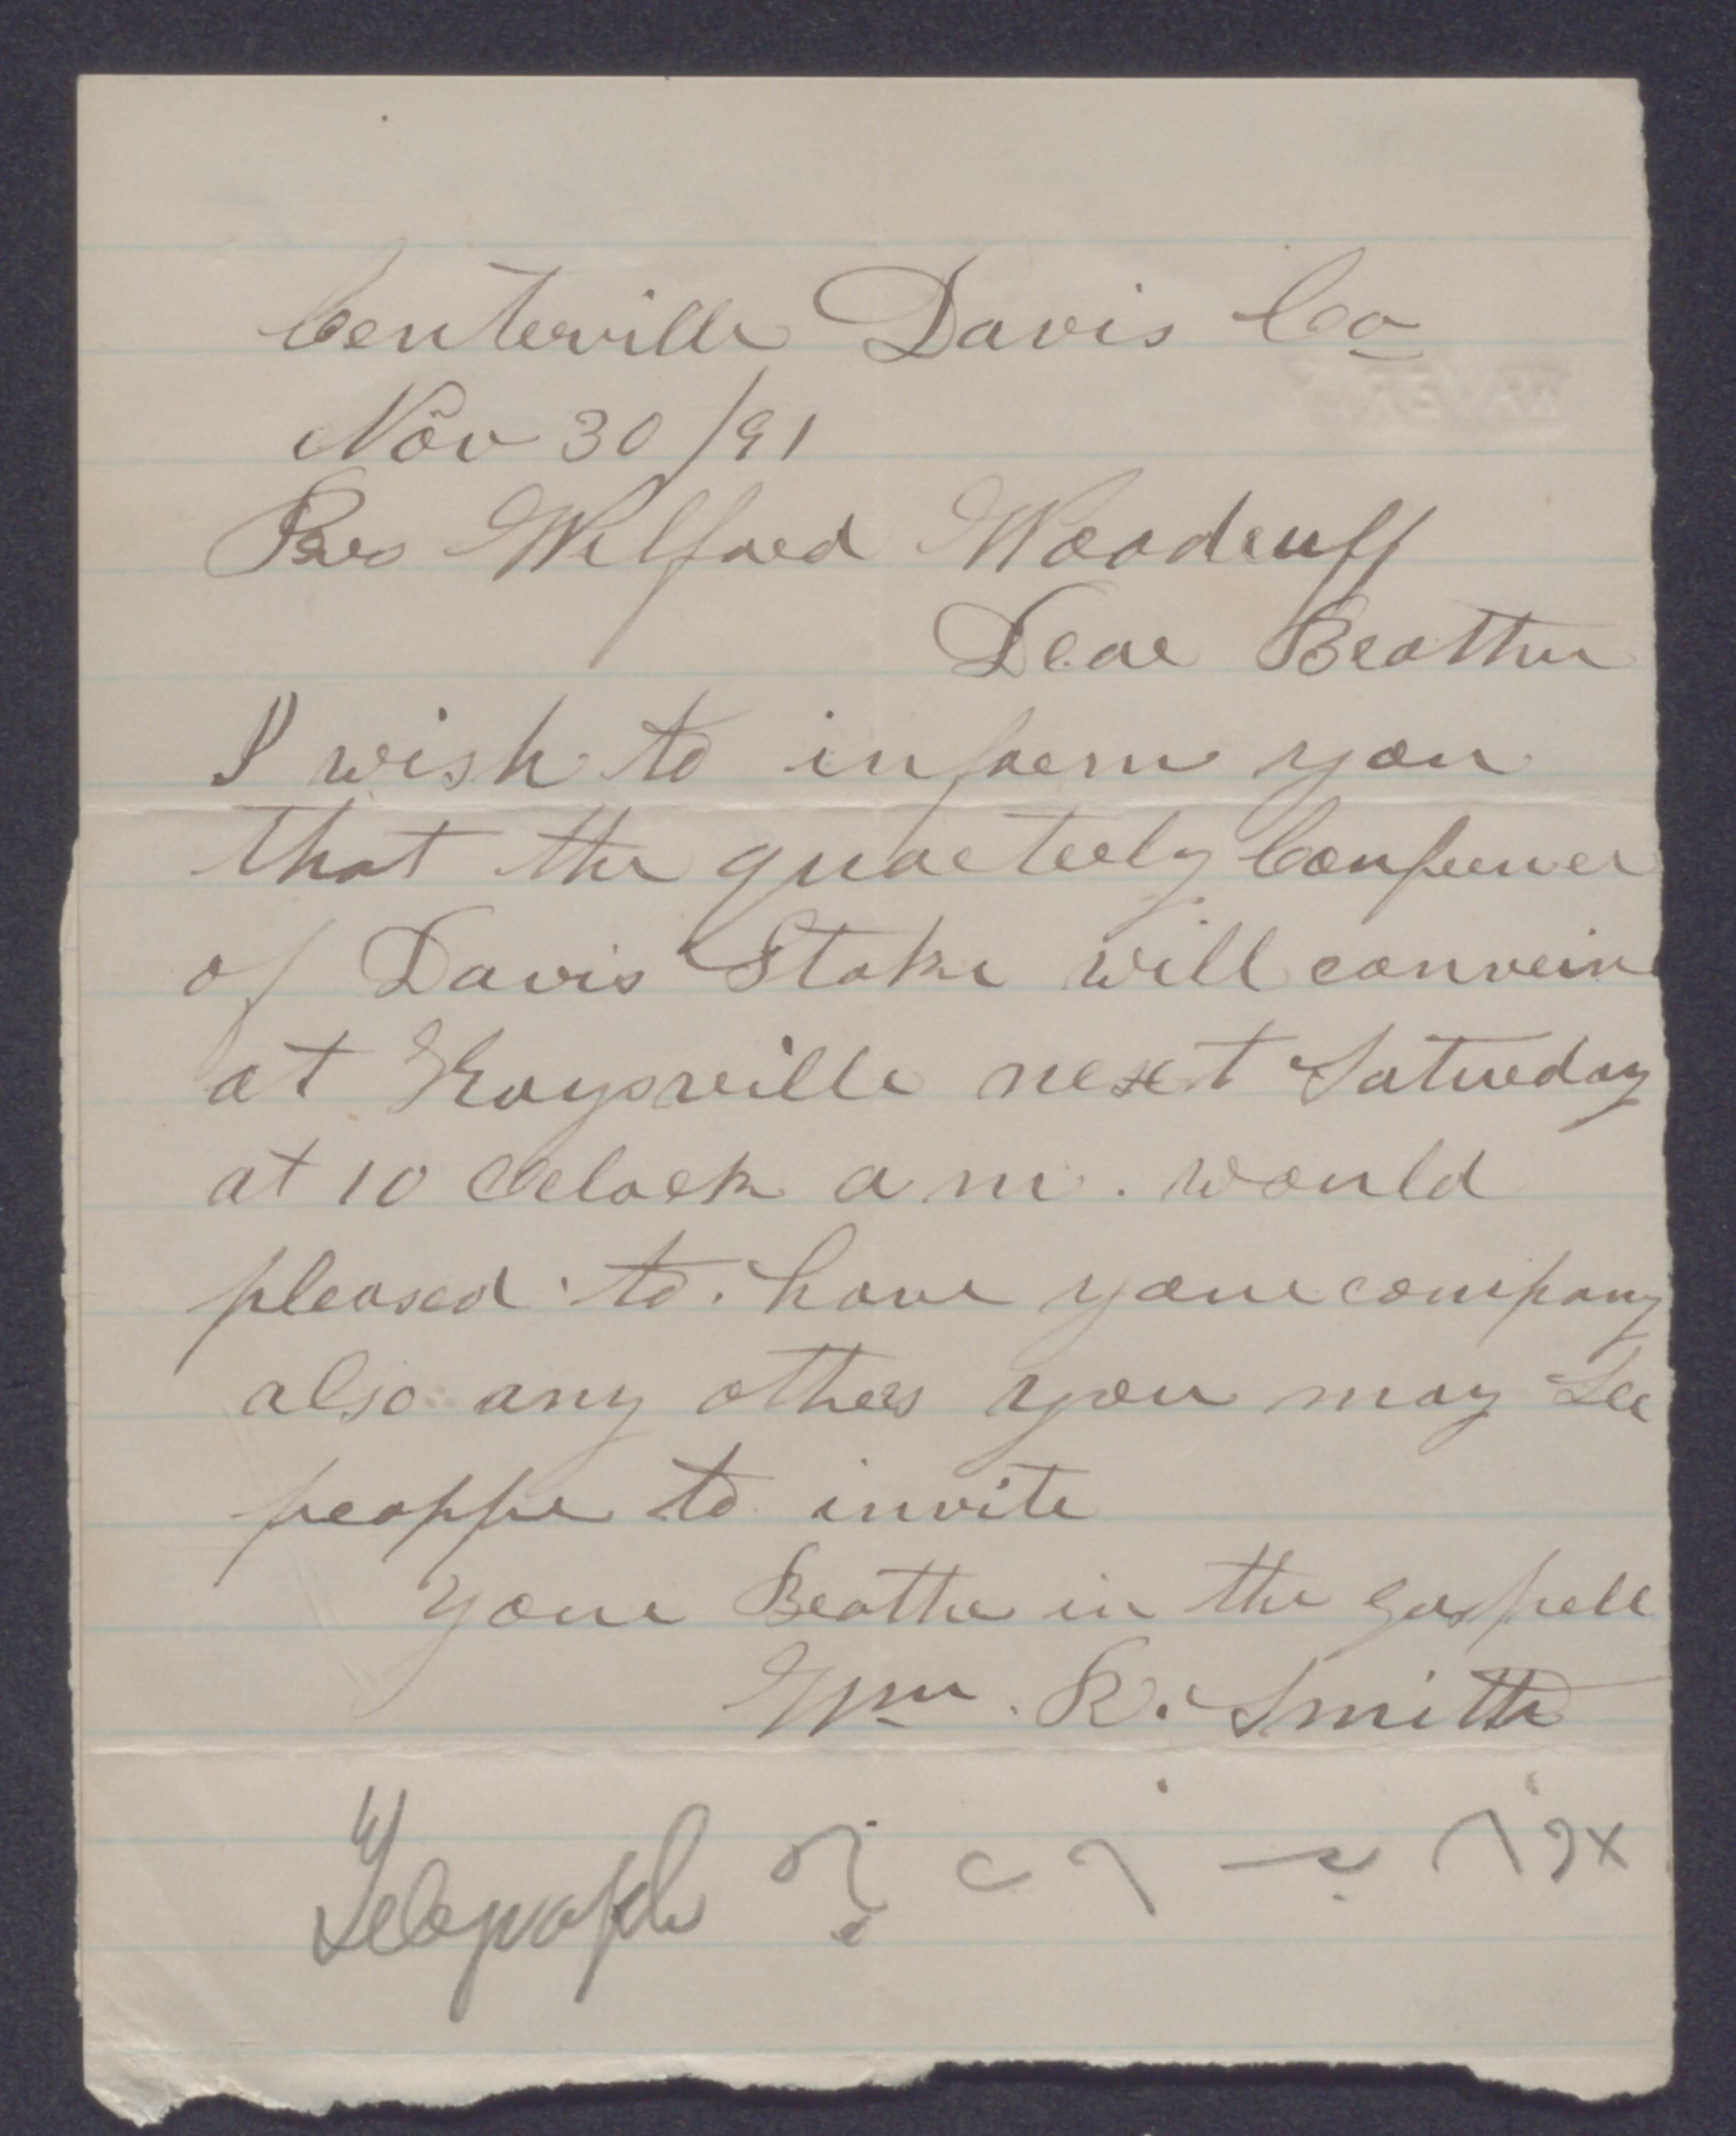 Centerville Davis Co
Nov 30/91
Pres Wilford Woodruff
Dear Brother
I wish to inform you
that the quarterly Conference
of Davis Stake will convein
at Kaysville next Saturday
at 10 Oclock a m. would
pleased to have your company
also any others you may See
propper to invite
your Brother in the gospell
Wm. R. Smith
Telegraph